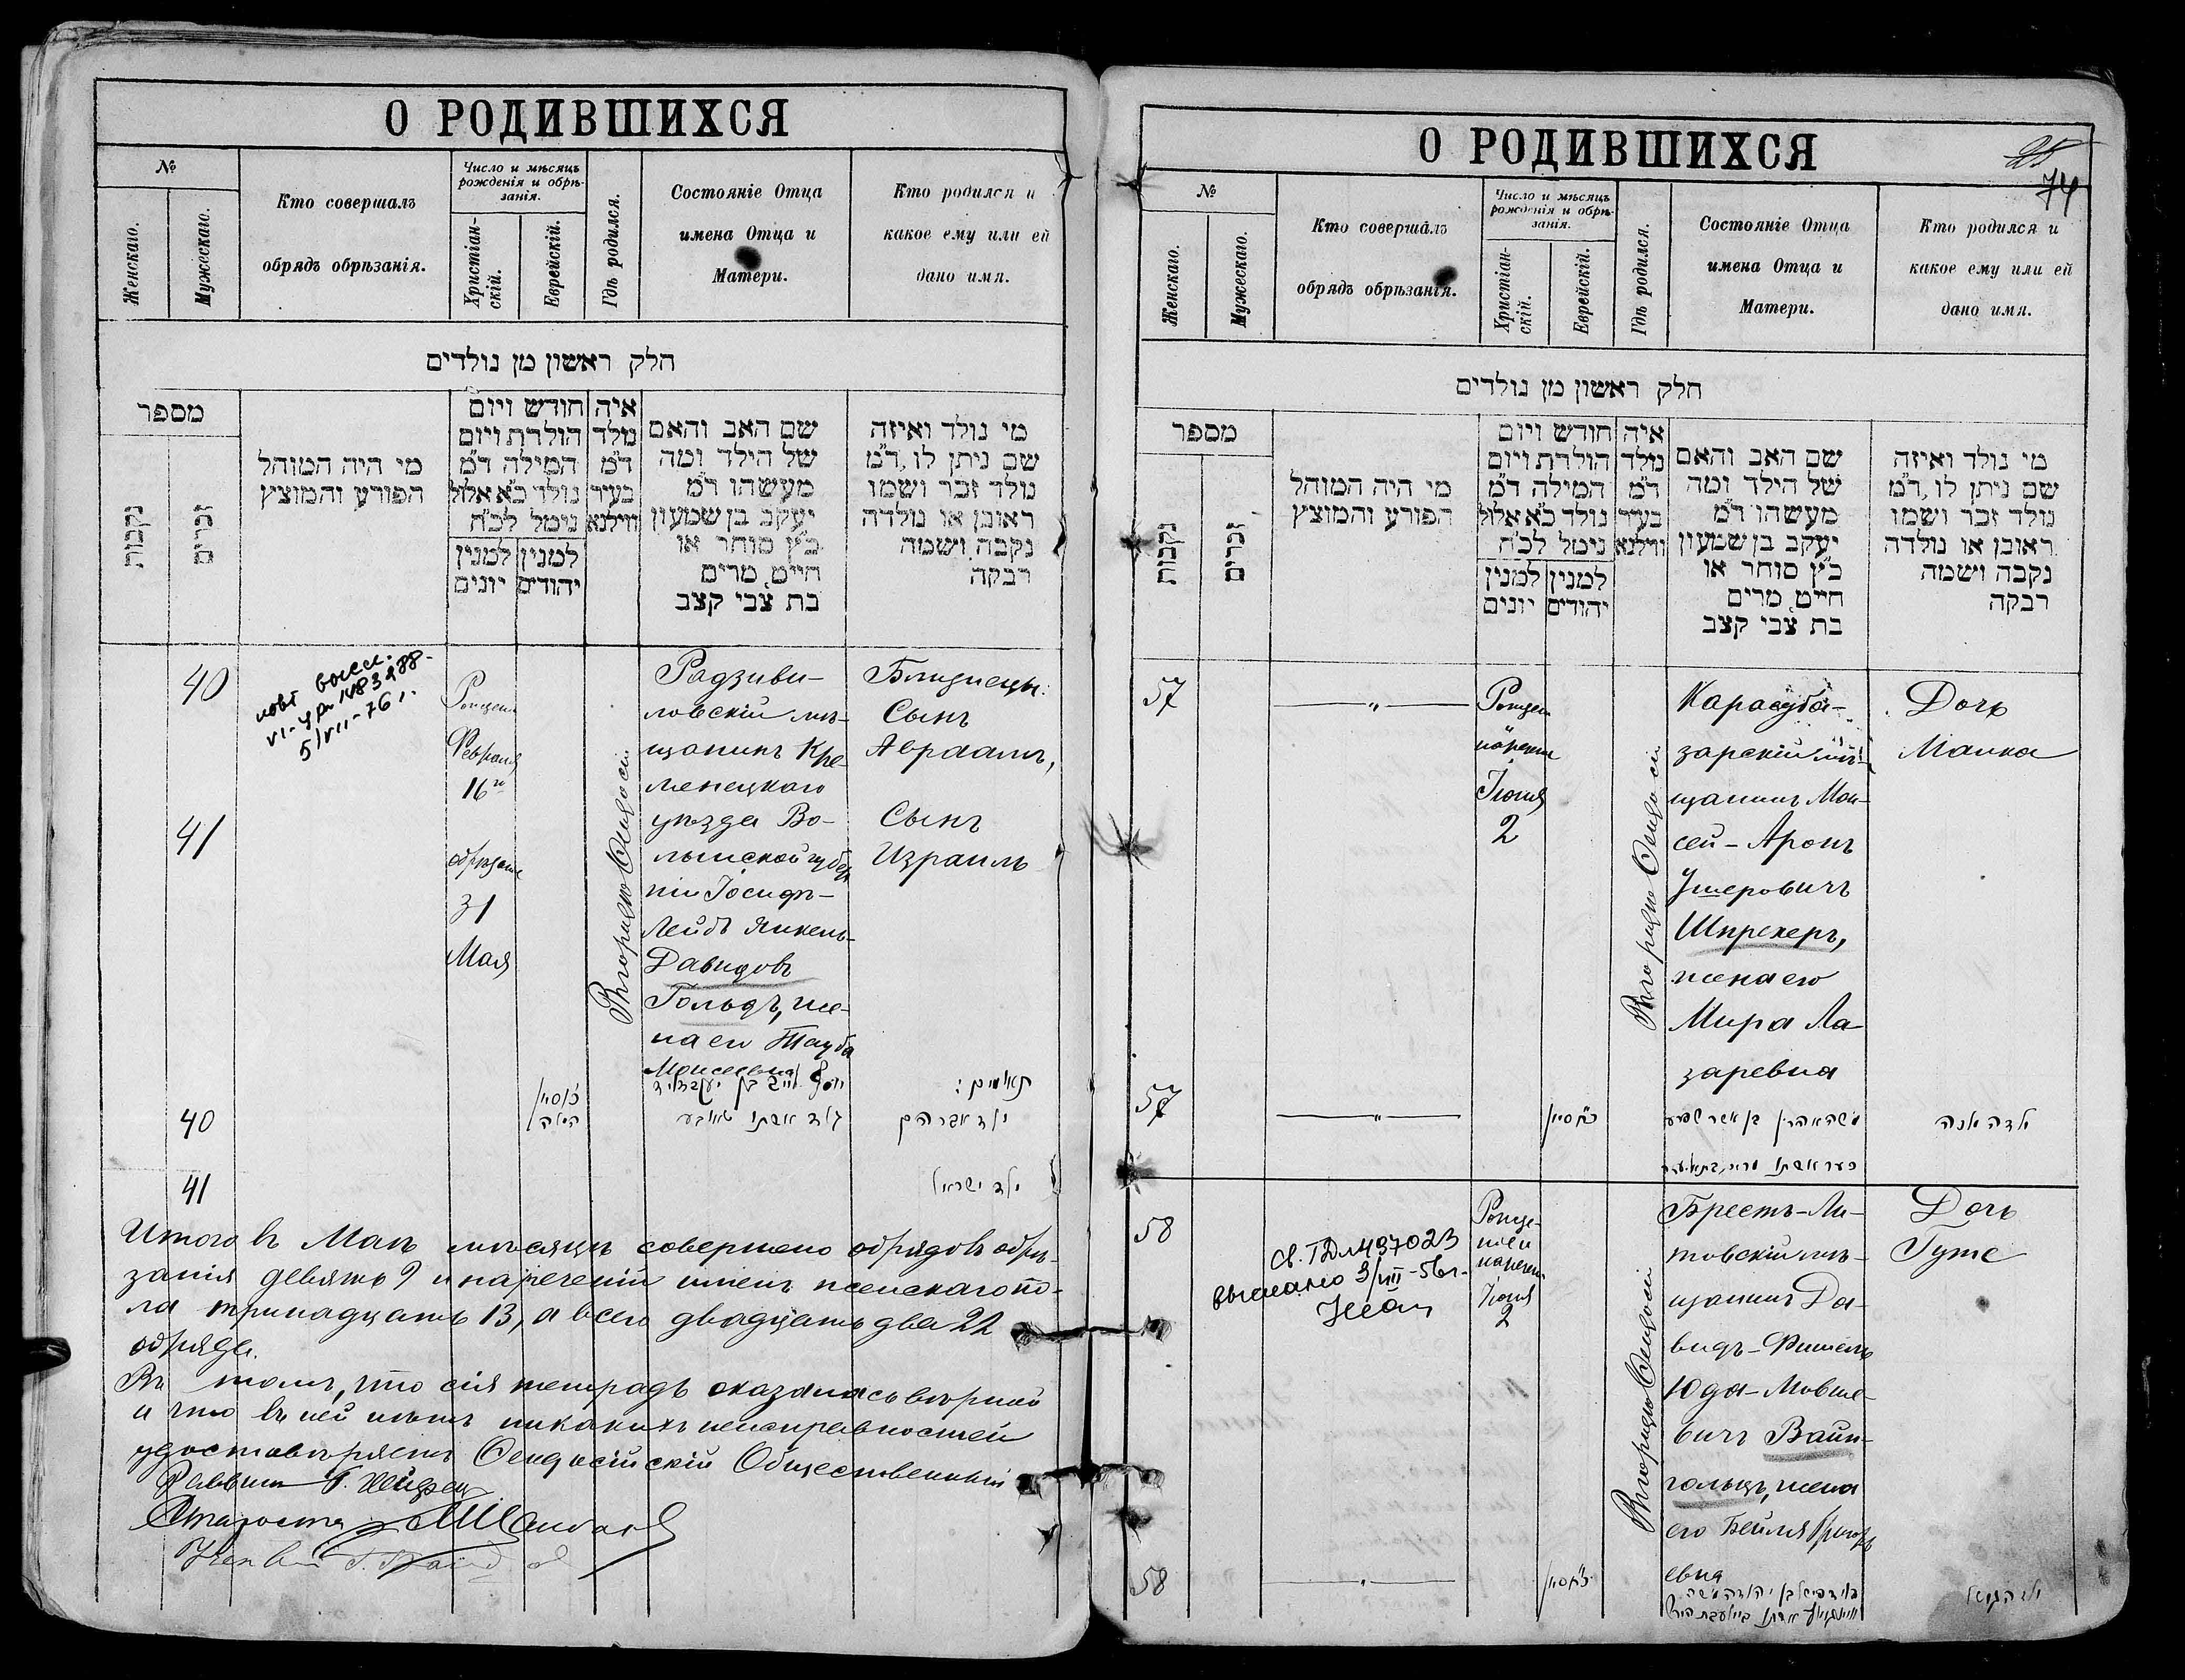 О РОДИВШИХСЯ
№
Женскаго.
Мужескаго.
Кто совершалъ
обрядъ обрѣзанія.
Число и мѣсяцъ
рожденія и обрѣ-
занія.
Христіан-
скій.
Еврейскій.
Гдѣ родился.
Состояніе Отца
имена Отца и
Матери.
Кто родился и
какое ему или ей
дано имя.
חלק ראשון מן נולדים
מספר
נקבות
זכרים
מי היה המוהל
הפורע והמוצץ
חודש ויום
הולדת ויום
המילה ד״מ
נולד כ״א אלול
נימל לכ״ח
למנין
יהודים
למנין
יונים
איה
נולד
ד״מ
בעיר
ווילנא
שם האב והאם
של הילד ומה
מעשהו ד״מ
יעקב בן שמעון
כ״ץ סוחר או
חייט, מרים
בת צבי קצב
מי נולד ואיזה
שם ניתן לו, ד״מ
נולד זכר ושמו
ראובן או נולדה
נקבה ושמה
רבקה
40
5/VII-76 г.
Февраля
16го
обрѣзаніе
31
Мая
Въ городѣ Ѳеодосіи
Радзиви-
ловскій мѣ-
щанинъ Кре-
менецкаго
уѣзда Во-
лынской губер
ніи Іосифъ-
Лейбъ Янкель-
Давидовъ
Гольдъ, же-
на его Тауба
Моисеевна
Близнецы:
Сынъ
Авраамъ,
41
Сынъ
Израиль
תאומים:
40
ילד אברהם
41
ילד ישראל
Итого въ Маѣ мѣсяцѣ совершено обрядовъ обрѣ-
занія девять 9 и нареченій именъ женскаго по-
ла тринадцать 13, а всего двадцать два 22
обряда.
Въ томъ, что сія тетрадь оказалась вѣрной
и что въ ней нѣтъ никакихъ неисправностей
удостовѣряетъ Ѳеодосійскій Общественный
Раввинъ
Староста
О РОДИВШИХСЯ
25
74
№
Женскаго.
Мужескаго.
Кто совершалъ
обрядъ обрѣзанія.
Число и мѣсяцъ
рожденія и обрѣ-
занія.
Христіан-
скій.
Еврейскій.
Гдѣ родился.
Состояніе Отца
имена Отца и
Матери.
Кто родился и
какое ему или ей
дано имя.
חלק ראשון מן נולדים
מספר
נקבות
זכרים
מי היה המוהל
הפורע והמוצץ
חודש ויום
הולדת ויום
המילה ד״מ
נולד כ״א אלול
נימל לכ״ח
למנין
יהודים
למנין
יונים
איה
נולד
ד״מ
בעיר
ווילנא
שם האב והאם
של הילד ומה
מעשהו ד״מ
יעקב בן שמעון
כ״ץ סוחר או
חייט, מרים
בת צבי קצב
מי נולד ואיזה
שם ניתן לו, ד״מ
נולד זכר ושמו
ראובן או נולדה
נקבה ושמה
רבקה
57
Іюня
2
Въ городѣ Ѳеодосіи
Карасуба-
зарскій мѣ-
щанинъ Мои-
сей-Аронъ
Ушеровичъ
Шпрехеръ,
жена его
Мира Ла-
заревна
Дочь
57
58
Св. ГДл №37023
выслано 3/VIII-56г.
Іюня
2
Въ городѣ Ѳеодосіи
Брестъ-Ли-
товскій мѣ-
щанинъ Да-
видъ-Фишель
Юда-Мовше-
вичъ Вайн-
гольцъ, жена
его Бейля
евна
Дочь
58